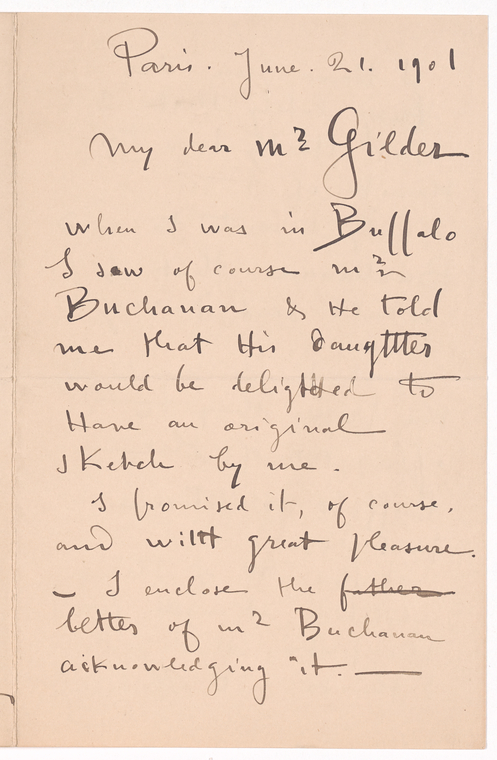 Paris. June. 21. 1901
My dear Mr Gilder
when I was in Buffalo
I saw of course Mr
Buchanan & He told
me that His daugtter
would be delightted to
Have an original
sketch by me.
I promised it, of course,
and witt great pleasure.
_ I enclose the father
better of Mr Buchanan
acknowledging it. —